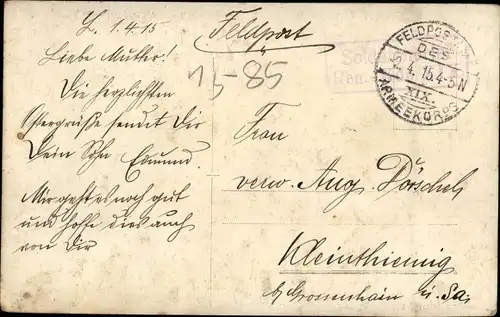 L. 1.4.15
Liebe Mutter!
Die herzlichsten
Ostergrüße sendet Dir
Dein Sohn Edmund.
Mir geht es noch gut
und hoffe dies auch
von Dir
Feldpost
15-85
FELDPOST
DES
2.4.15 4-5N
XIX.
ARMEEKORPS
Frau
verw. Aug. Dörschel
Kleinthiemig
b/ Grossenhain i. Sa.